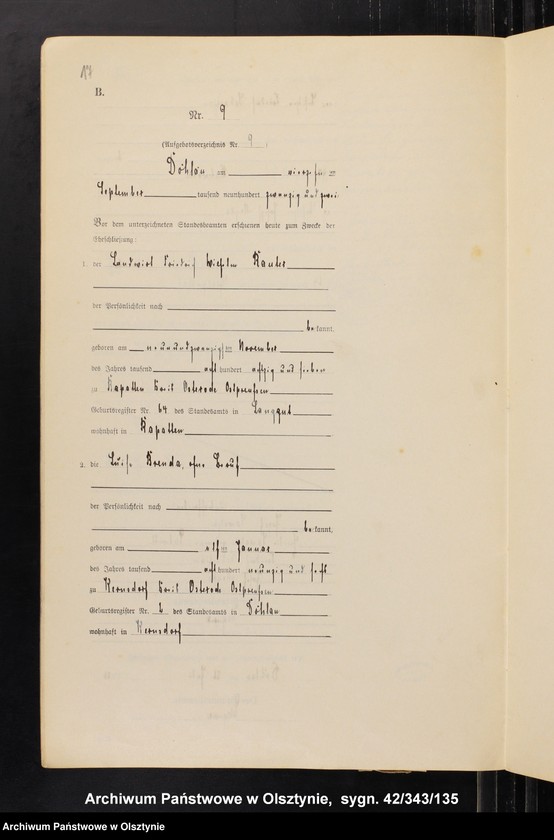 17
B.
Nr. 9
(Aufgebotsverzeichnis Nr. 9)
Döhlau am vierzehn ten
September tausend neunhundert zwanzig und zwei
Vor dem unterzeichneten Standesbeamten erschienen heute zum Zwecke der
Eheschließung:
1. der Landwirt Friedrich Wilhelm
der Persönlichkeit nach
bekannt,
geboren am neunundzwanzigsten November
des Jahres tausend acht hundert achtzig und sieben
zu Kapatten Kreis Osterode Ostpreußen
Geburtsregister Nr. 64 des Standesamts in Langgut
wohnhaft in Kapatten
2. die Luise, ohne Beruf
der Persönlichkeit nach
bekannt,
geboren am elf ten Januar
des Jahres tausend acht hundert neunzig und sechs
zu Kernsdorf Kreis Osterode Ostpreußen
Geburtsregister Nr. des Standesamts in Döhlau
wohnhaft in Kernsdorf
Archiwum Państwowe w Olsztynie, sygn. 42/343/135
Archiwum Państwowe w Olsztynie